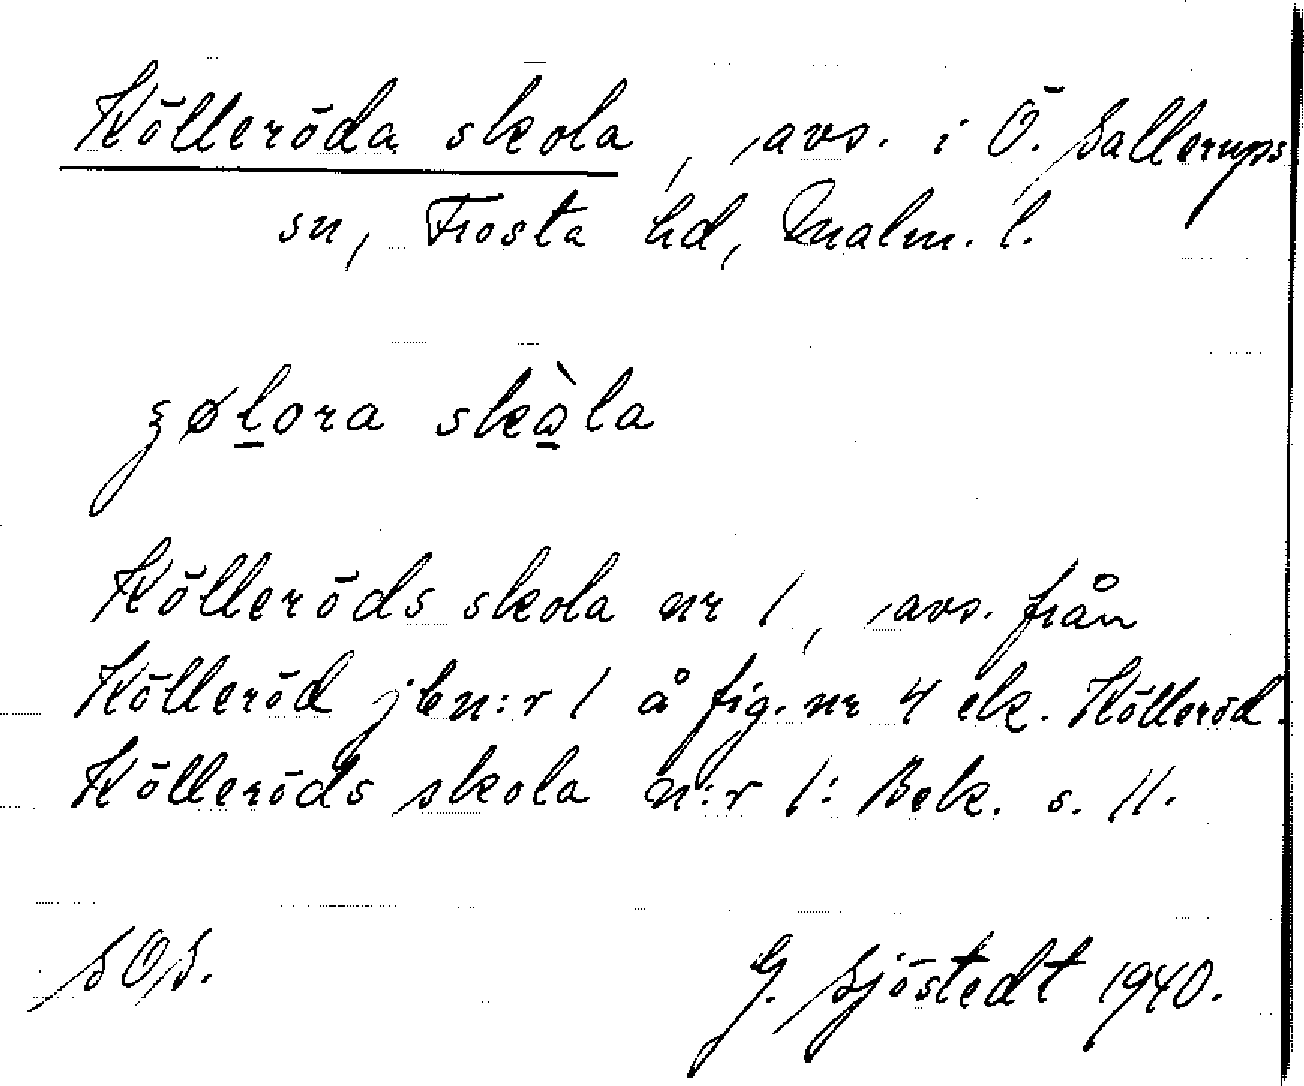 Kölleröda skola, avs. i Ö. Sallerups
sn, Frosta hd, Malm. l.
ʒølora skòla
Kölleröds skola nr 1, avs. från
Kölleröd jbn:r 1 å fig. nr 4 ek. Kölleröd.
Kölleröds skola n:r 1: Bek. s. 11.
SOS.
G. Sjöstedt 1940.